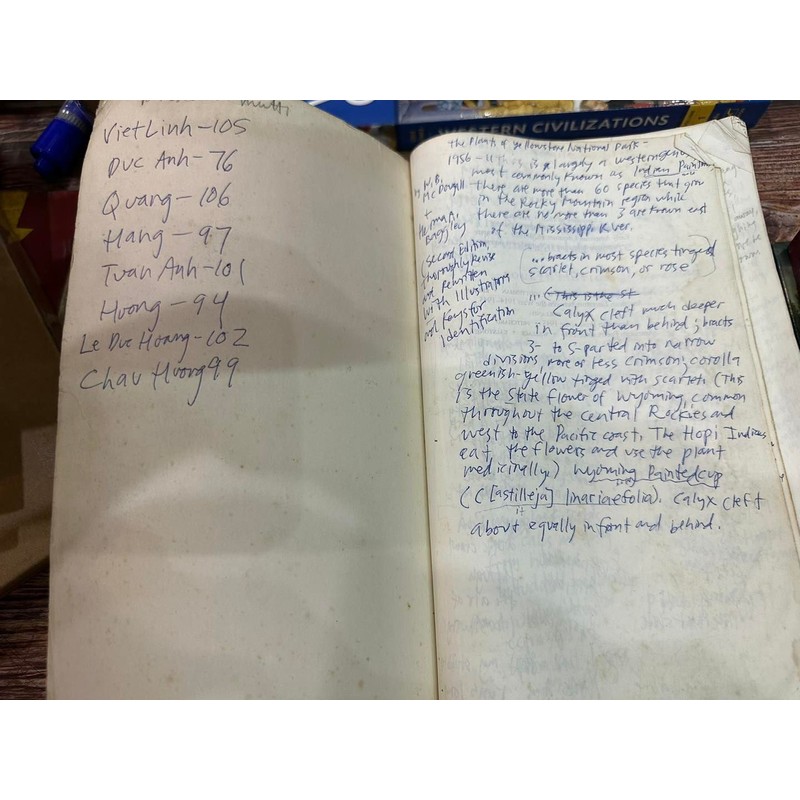 multi
VietLinh-105
Duc Anh-76
Quang-106
Hang-97
Tuan Anh-101
Huong-94
Le Duc Hoang-102
Chau Huong 99
WESTERN CIVILIZATIONS
The Plants of Yellowstone National Park-
1956- is a largely a western
most commonly known as Indian
there are more than 60 species that grow
in the Rocky Mountain region while
there are no more than 3 are known east
of the Mississippi River.
by W.B.
McDougall
+
Herma
Baggley
Second Edition,
thoroughly Revise
and Rewritten
with Illustrations
and Keys for
Identification
...bracts in most species tinged
scarlet, crimson, or rose
...(This is the st
Calyx cleft much deeper
in front than behind; bracts
3- to 5-parted into narrow
divisions more or less crimson; corolla
greenish-yellow tinged with scarlet. (This
is the state flower of Wyoming, common
throughout the central Rockies and
west to the Pacific coast. The Hopi Indians
eat the flowers and use the plant
medicinally.) Wyoming Paintedcup
(C[astilleja] linariaefolia). Calyx cleft
about equally in front and behind.